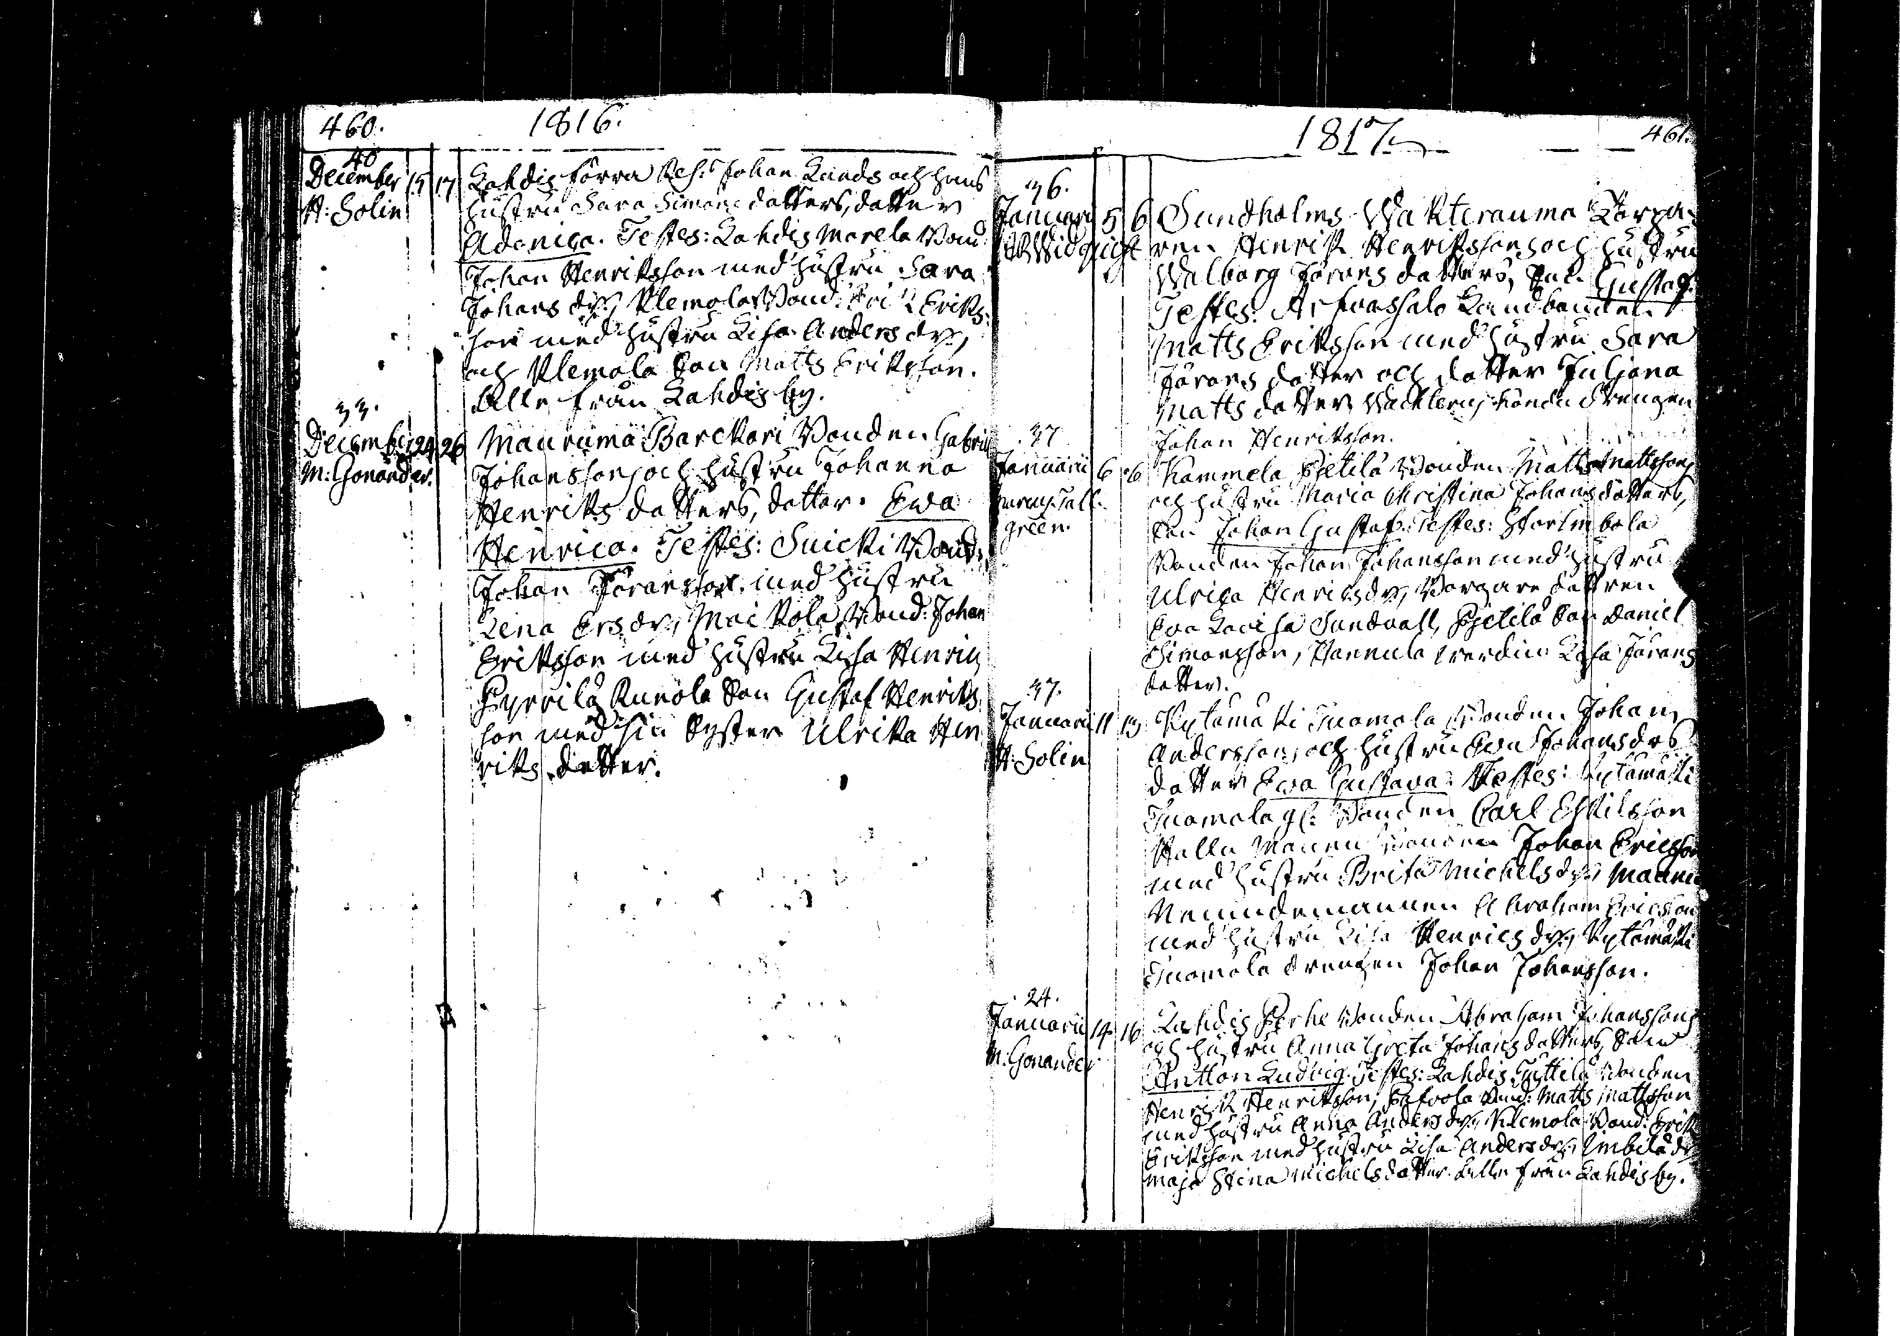 460. 1816.
40
December 15 17 Lahdis förra Johan Lunds och hans
A: Solin hustru Sara Simons datters, datter
Adonica. Testes: Lahdis Marela Bond:
Johan Henriksson med hustru Sara
Johans dr, Klemola Bond: Eric Eriks-
son med hustru Lisa Anders dr,
och Klemola Son Matts Eriksson.
Alle från Lahdis by.
33.
December 24 26 Mauruma Barckari Bonden Gabriel
M: Gonander. Johansson, och hustru Johanna
Henriks datters, datter. Ewa
Henrica. Testes: Suicki Bond:
Johan Göransson med hustru
Lena Ersdr, Maikola Bond: Johan
Eriksson med hustru Lisa Henrics
Pyrrilä Runola Son Gustaf Henriks
son med sin Syster Ulrika Hen
riks datter.
1817 461.
36.
Januarii 5 6 Sundholms Wakterauma
A: Widqvist Henrik Henriksson, och hustru
Walborg Jörans datters, Son Gustaf.
Testes: Landbonden
Matts Eriksson med hustru Sara
Jörans datter och datter Juliana
Matts datter drengen
Johan Henriksson.
37
Januarii 6 6 Kammela Pietilä Bonden Matts Mattssons
Tall- och hustru Maria Christina Johans datters,
green. Son Johan Gustaf. Testes:
Bonden Johan Johansson med hustru
Ulrica Henricsdr, Borgare dattren
Eva Lovisa Sundvall, Pietilä Son Daniel
Simonsson, Hannula Lisa Jörans
datter.
37.
Januarii 11 13 Kytämäki Tuomola Bonden Johan
A: Solin Andersson, och hustru Ewa Johansdrs
datter Ewa Gustava. Testes: Kytämäki
Tuomola gl: Bonden Carl Eskilsson
Bonden Johan Ericsson
med hustru Brita Michelsdr,
Nemndemannen Abraham Ericsson
med hustru Lisa Henricsdr, Kytämäki
Tuomola drengen Johan Johansson.
24.
Januarii 14 16 Lahdis Perhe Bonden Abraham Johanssons
M: Gonander och hustru Anna Greta Johans datters, Son
Antton Ludvig. Testes: Lahdis Bonden
Henrik Henriksson, Bond: Matts Mattsson
med hustru Anna Anders dr, Klemola Bond: Erik
Eriksson med hustru Lisa Anders dr, Imbilä
Maja Stina Michels datter. Alle från Lahdis by.